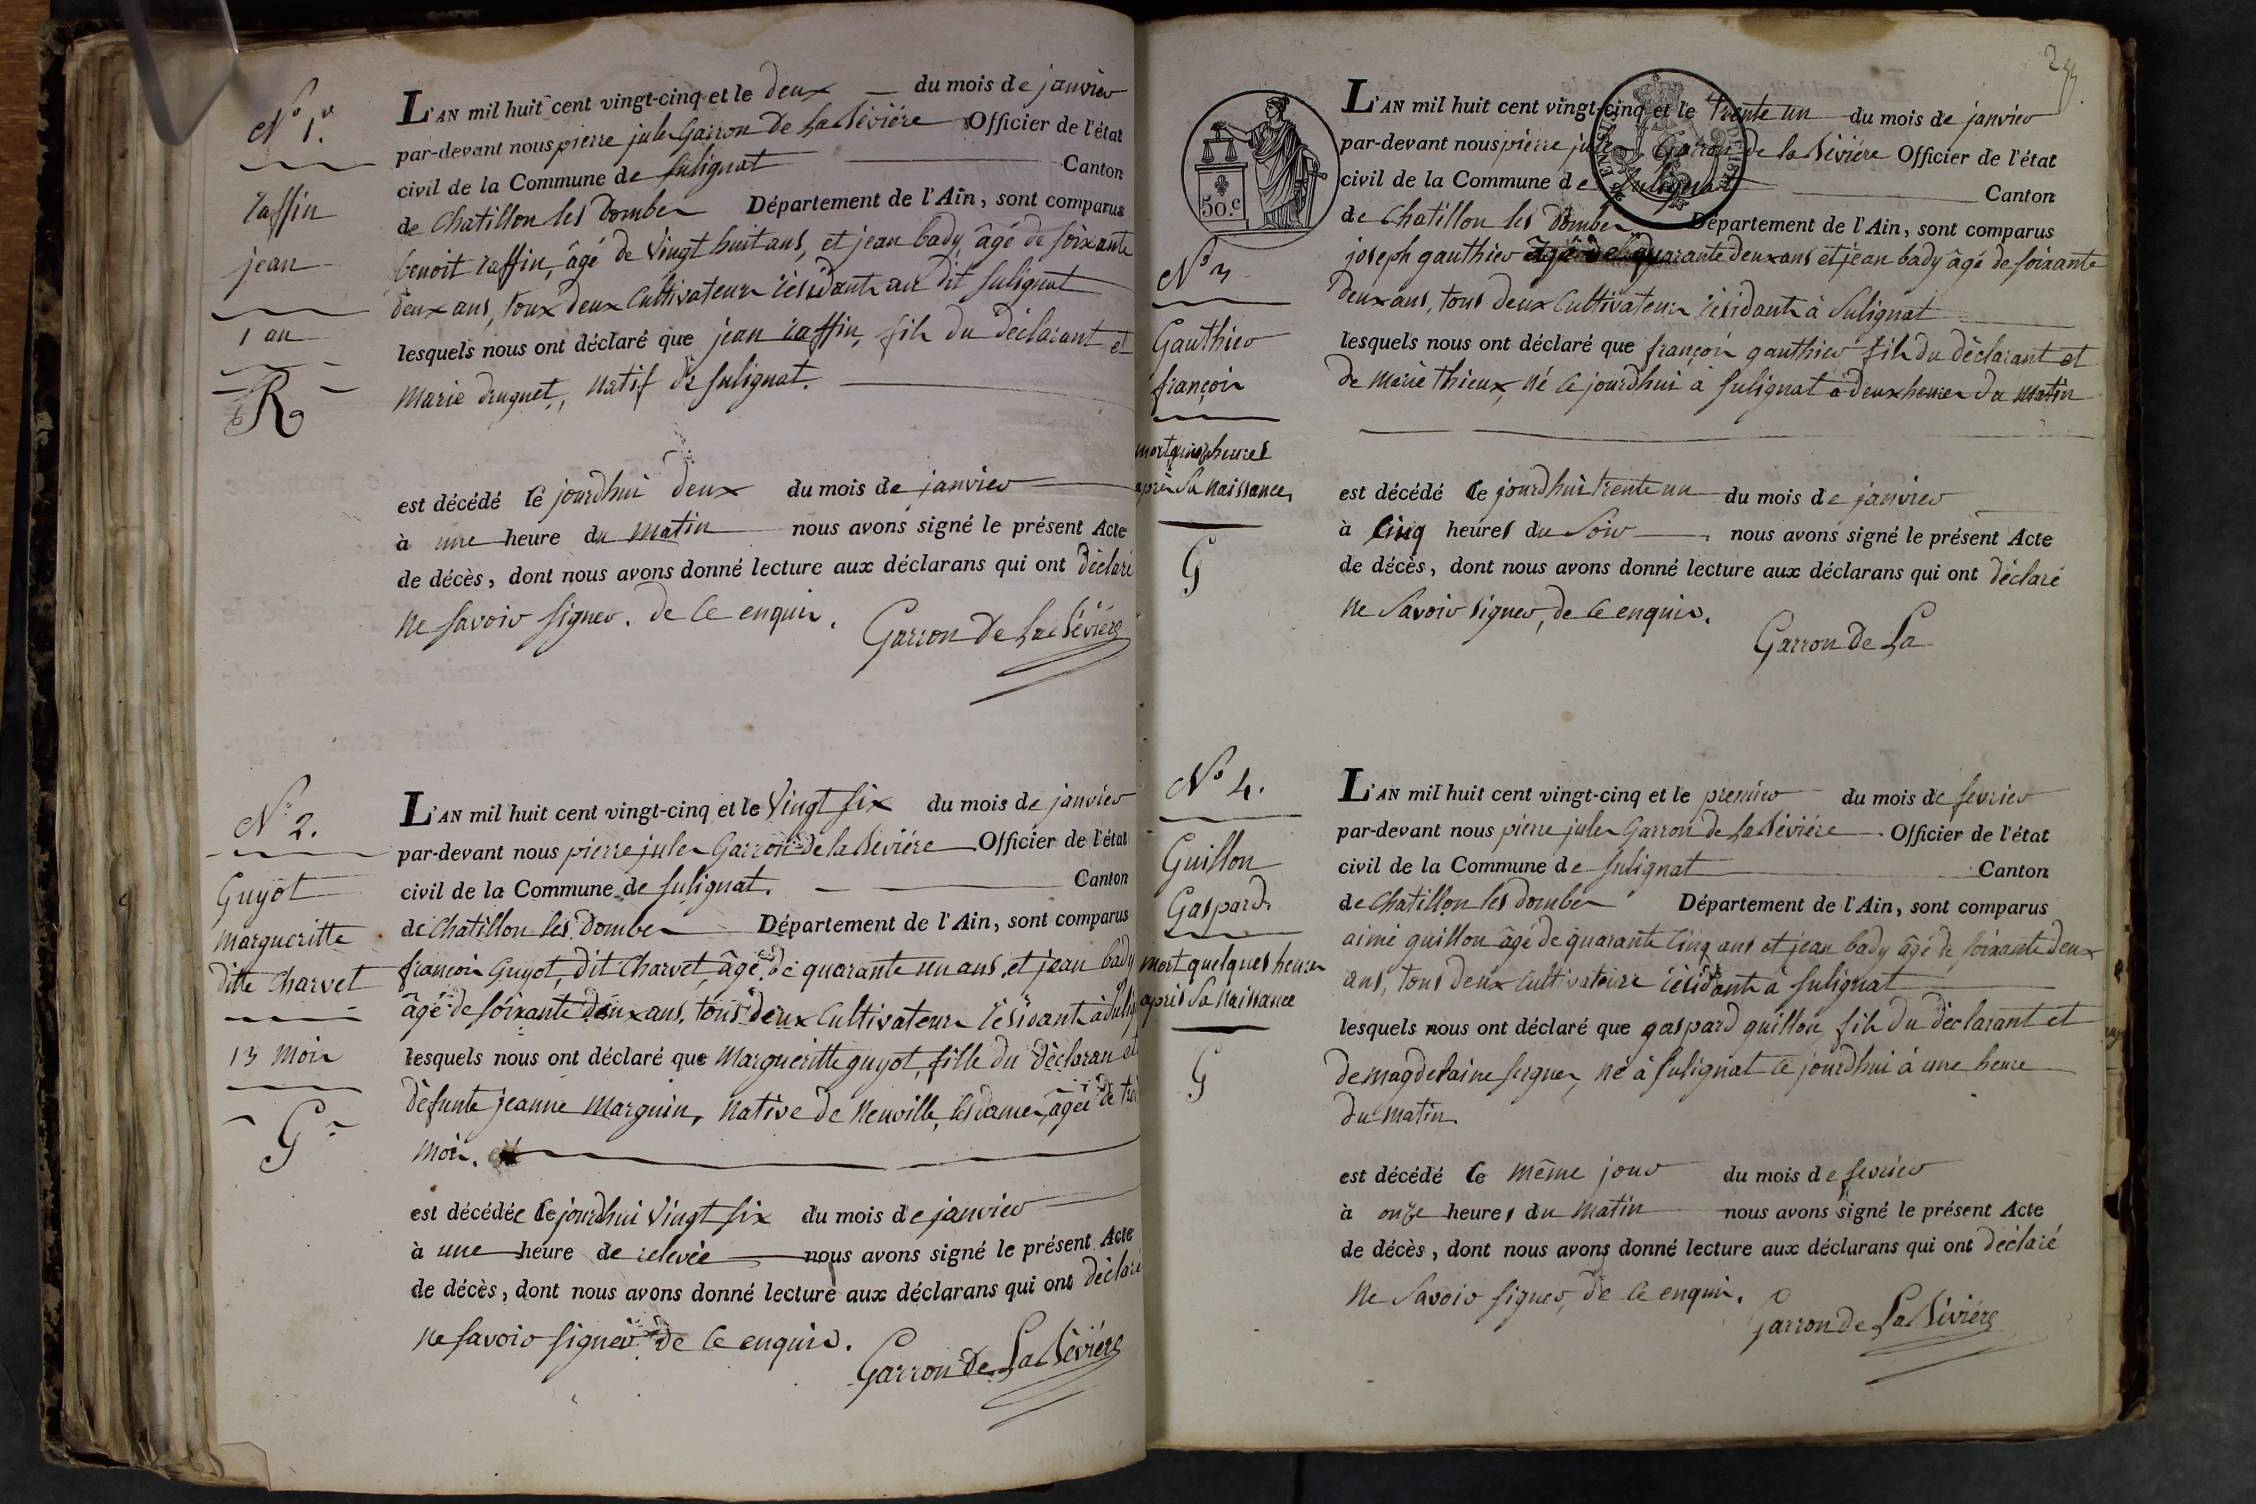 N° 1er.
raffin
jean
1 an
R
L'AN mil huit cent vingt-cinq et le deux du mois de janvier
par-devant nous pierre jules Garron De La Sévière Officier de l'état
civil de la Commune de Sulignat Canton
de Chatillon les Dombes Département de l'Ain, sont comparus
benoit raffin, âgé de Vingt huit ans, et jean bady âgé de soixante
deux ans, tous deux Cultivateurs résidants au dit Sulignat
lesquels nous ont déclaré que jean raffin, fils du déclarant et
Marie druguet, natif de Sulignat.
est décédé ce jourdhui deux du mois de janvier
à une heure du matin nous avons signé le présent Acte
de décès, dont nous avons donné lecture aux déclarans qui ont déclaré
ne savoir signer. de ce enquis. Garron De La Sévière
N° 2.
Guyot
margueritte
ditte Charvet
13 mois
G
L'AN mil huit cent vingt-cinq et le Vingt six du mois de janvier
par-devant nous pierre jules Garron de la Sévière Officier de l'état
civil de la Commune de Sulignat. Canton
de Chatillon les Dombes Département de l'Ain, sont comparus
françois Guyot, dit Charvet, âgé de quarante un ans et jean bady
âgé de soixante deux ans, tous deux Cultivateurs résidants à Sulig
lesquels nous ont déclaré que Margueritte guyot, fille du déclaran et
défunte jeanne Marguin, native de Neuville les dames, âgée de
mois.
est décédée ce jourdhui Vingt six du mois de janvier
à une heure de relevée nous avons signé le présent Acte
de décès, dont nous avons donné lecture aux déclarans qui ont déclaré
ne savoir signer de ce enquis.
Garron De La Sévière
50.c
N° 3
Gauthier
françois
mort quinze heures
après sa naissance,
G
L'AN mil huit cent vingt-cinq et le trente un du mois de janvier
par-devant nous pierre jules Garron de la Sévière Officier de l'état
civil de la Commune de Sulignat Canton
de Chatillon les Dombes Département de l'Ain, sont comparus
joseph gauthier âgé de quarante deux ans et jean bady âgé de soixante
deux ans, tous deux Cultivateurs résidants à Sulignat
lesquels nous ont déclaré que françois gauthier fils du déclarant et
de Marie thieux, né ce jourdhui à Sulignat à deux heures du matin
est décédé ce jourdhui trente un du mois de janvier
à Cinq heures du Soir nous avons signé le présent Acte
de décès, dont nous avons donné lecture aux déclarans qui ont déclaré
ne Savoir signer, de ce enquis.
Garron De La
N° 4.
Guillon
Gaspard
mort quelques heures
après sa naissance
G
L'AN mil huit cent vingt-cinq et le premier du mois de fevrier
par-devant nous pierre jules Garron de La Sévière Officier de l'état
civil de la Commune de Sulignat Canton
de Chatillon les dombes Département de l'Ain, sont comparus
aimé guillon âgé de quarante Cinq ans et jean bady âgé de soixante deux
ans, tous deux cultivateurs résidants à Sulignat
lesquels nous ont déclaré que gaspard guillon, fils du déclarant et
de magdelaine né à Sulignat ce jourdhui à une heure
du matin
est décédé le même jour du mois de fevrier
à onze heures du matin nous avons signé le présent Acte
de décès, dont nous avons donné lecture aux déclarans qui ont déclaré
ne Savoir signer, de ce enquis.
Garron de La Sévière